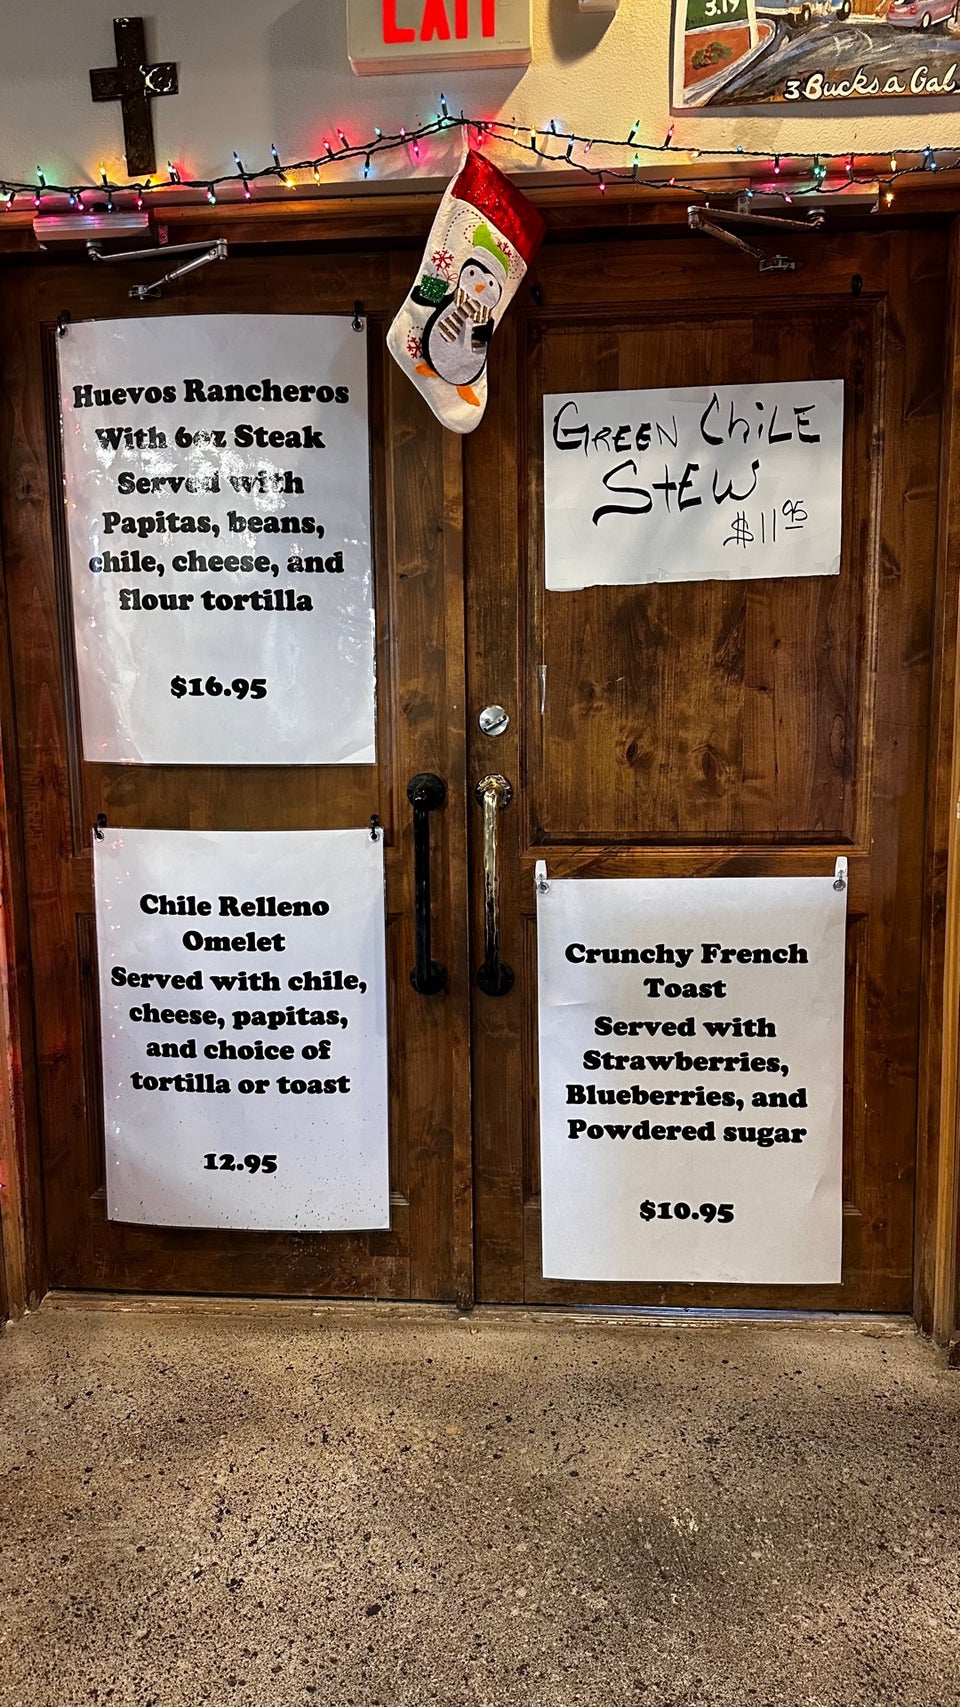 EXIT
3.19
3 Bucks a Gal
Huevos Rancheros
With 6oz Steak
Served with
Papitas, beans,
chile, cheese, and
flour tortilla
$16.95
GREEN CHiLE
StEW
$11.95
Chile Relleno
Omelet
Served with chile,
cheese, papitas,
and choice of
tortilla or toast
12.95
Crunchy French
Toast
Served with
Strawberries,
Blueberries, and
Powdered sugar
$10.95